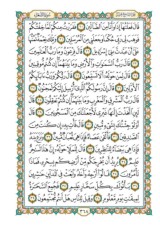 قال فعلتها إذا وأنا من الضالين ۝ ففررت منكم لما خفتكم
فوهب لي ربي حكما وجعلني من المرسلين ۝ وتلك نعمة تمنها
علي أن عبدت بني إسرائيل ۝ قال فرعون وما رب العالمين ۝
قال رب السماوات والأرض وما بينهما إن كنتم موقنين ۝
قال لمن حوله ألا تستمعون ۝ قال ربكم ورب آبائكم الأولين ۝
قال إن رسولكم الذي أرسل إليكم لمجنون ۝
قال رب المشرق والمغرب وما بينهما إن كنتم تعقلون ۝
قال لئن اتخذت إلها غيري لأجعلنك من المسجونين ۝
قال أولو جئتك بشيء مبين ۝ قال فأت به إن كنت من
الصادقين ۝ فألقى عصاه فإذا هي ثعبان مبين ۝ ونزع يده
فإذا هي بيضاء للناظرين ۝ قال للملإ حوله إن هذا لساحر
عليم ۝ يريد أن يخرجكم من أرضكم بسحره فماذا
تأمرون ۝ قالوا أرجه وأخاه وابعث في المدائن حاشرين
۝ يأتوك بكل سحار عليم ۝ فجمع السحرة
لميقات يوم معلوم ۝ وقيل للناس هل أنتم مجتمعون ۝
٣٦٨